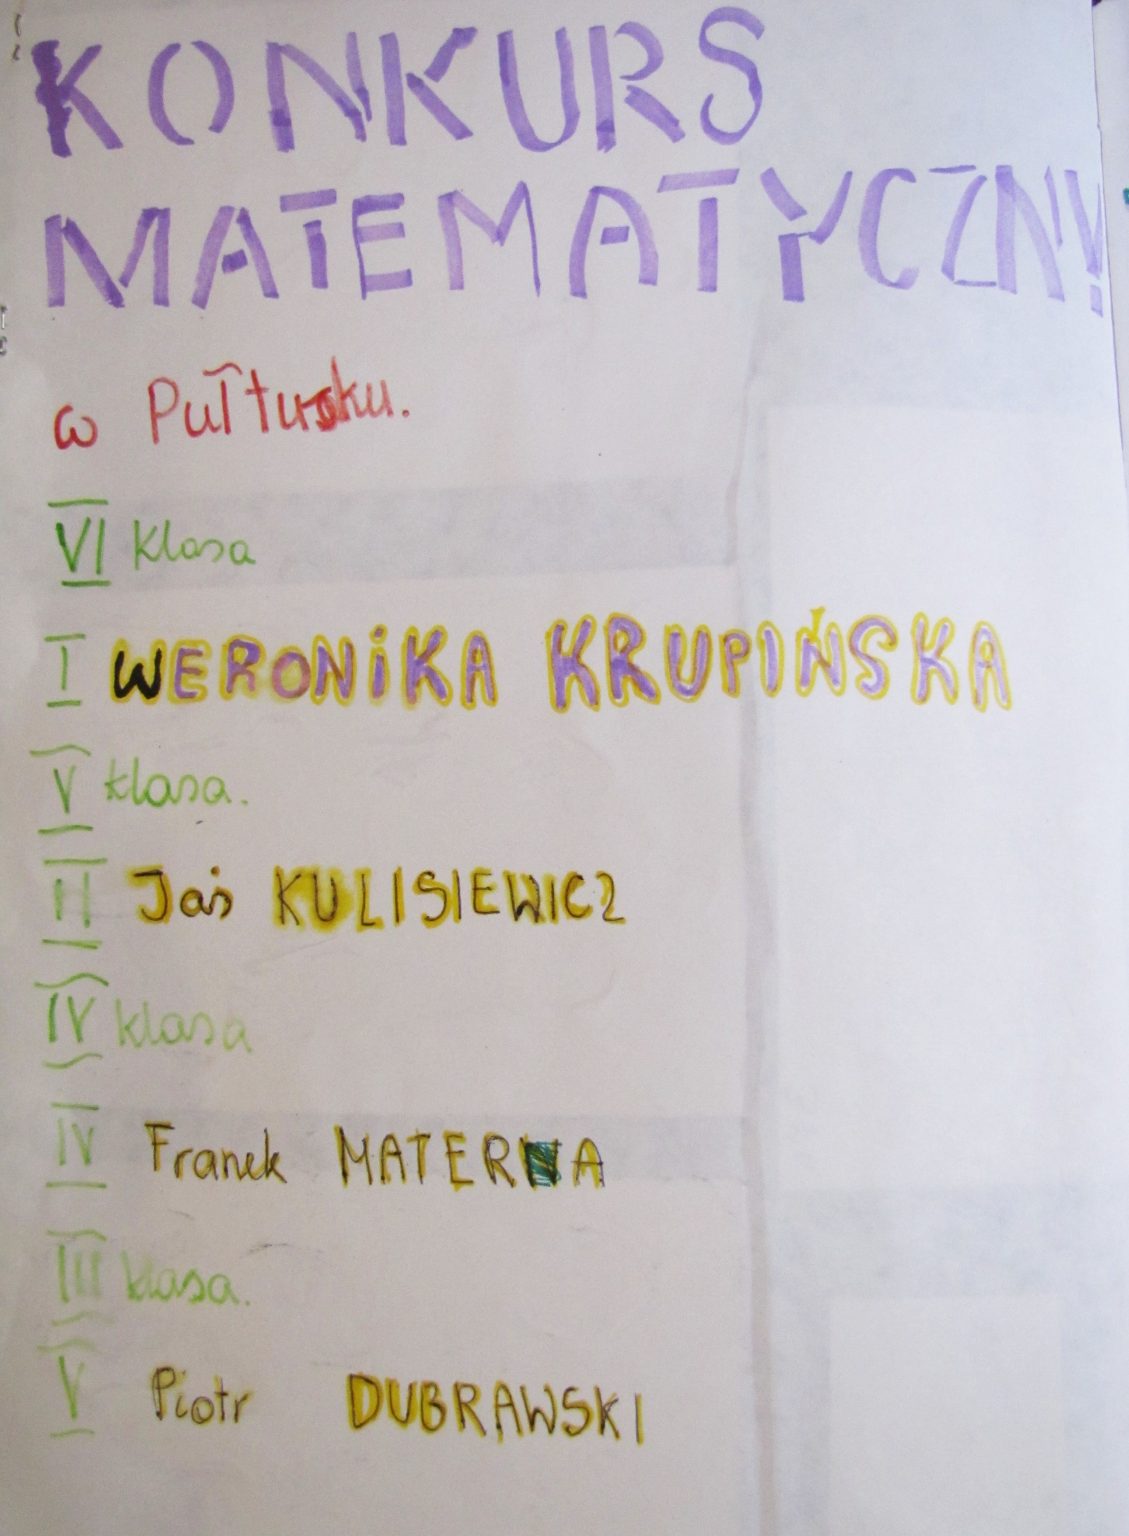 KONKURS
MATEMATYCZNY
w Pułtusku.
VI klasa
I WERONiKA KRUPIŃSKA
V klasa.
II Jaś KULISIEWICZ
IV klasa
IV Franek MATERNA
III klasa.
V Piotr DUBRAWSKI